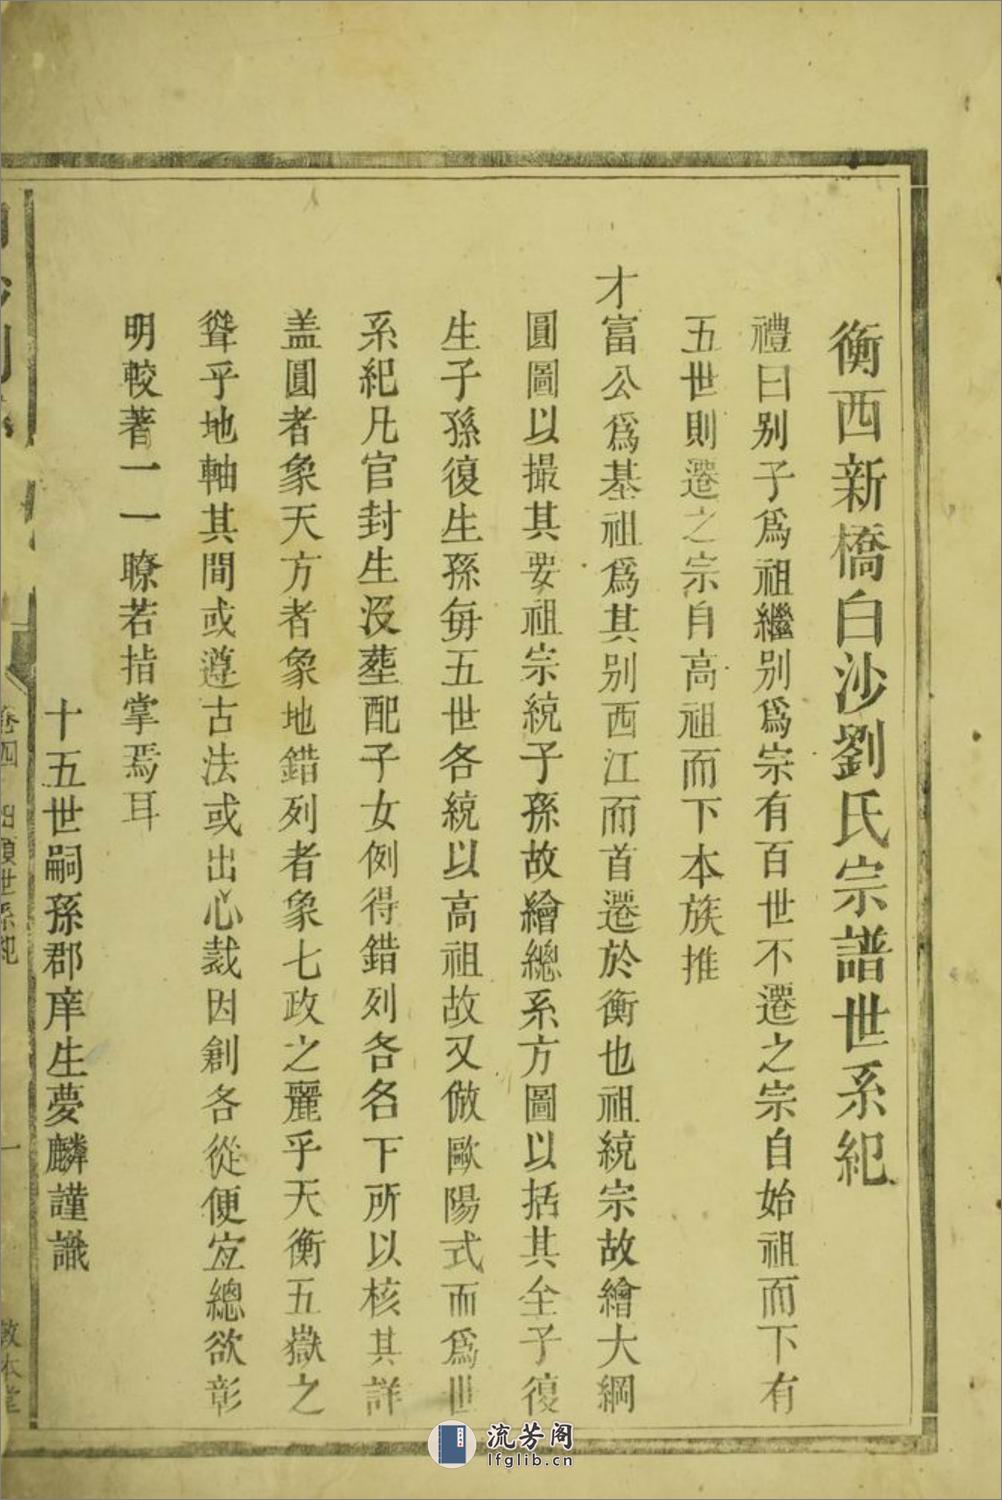 衡西新橋白沙劉氏宗譜世系紀
禮曰别子爲祖繼别爲宗有百世不遷之宗自始祖而下有
五世則遷之宗自高祖而下本族推
才富公爲基祖爲其别西江而首遷於衡也祖統宗故繪大綱
圓圖以撮其要祖宗統子孫故繪總系方圖以括其全子復
生子孫復生孫每五世各統以高祖故又倣歐陽式而爲世
系紀凡官封生沒塟配子女例得錯列各名下所以核其詳
盖圓者象天方者象地錯列者象七政之麗乎天衡五嶽之
聳乎地軸其間或遵古法或出心裁因創各從便宜總欲彰
明較著一一瞭若指掌焉耳
十五世嗣孫郡庠生夢麟謹識
卷四 世系紀 一 敦本堂
流芳阁
lfglib.cn